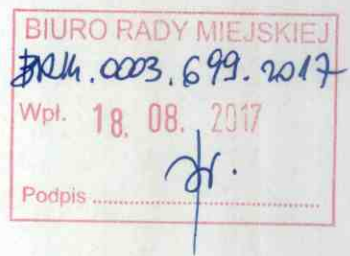 BIURO RADY MIEJSKIEJ
BRM.0003.699.2017
Wpł. 18. 08. 2017
Podpis ....................